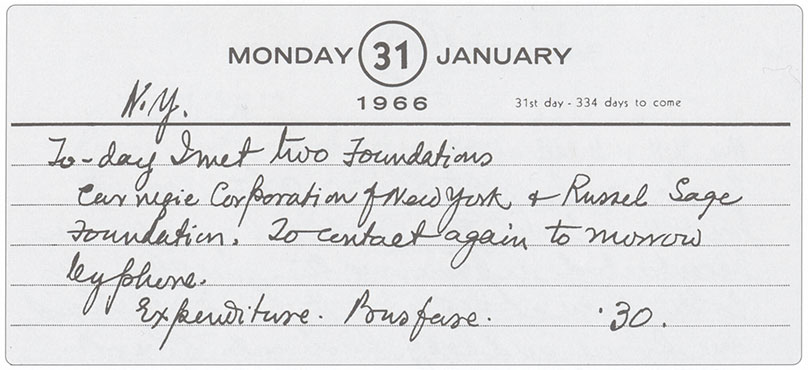 MONDAY 31 JANUARY
N.Y. 1966 31st day - 334 days to come
To-day I met two Foundations
Carnegie Corporation of New York & Russel Sage
Foundation. To contact again to morrow
by phone.
Expenditure. Bus fare. .30.